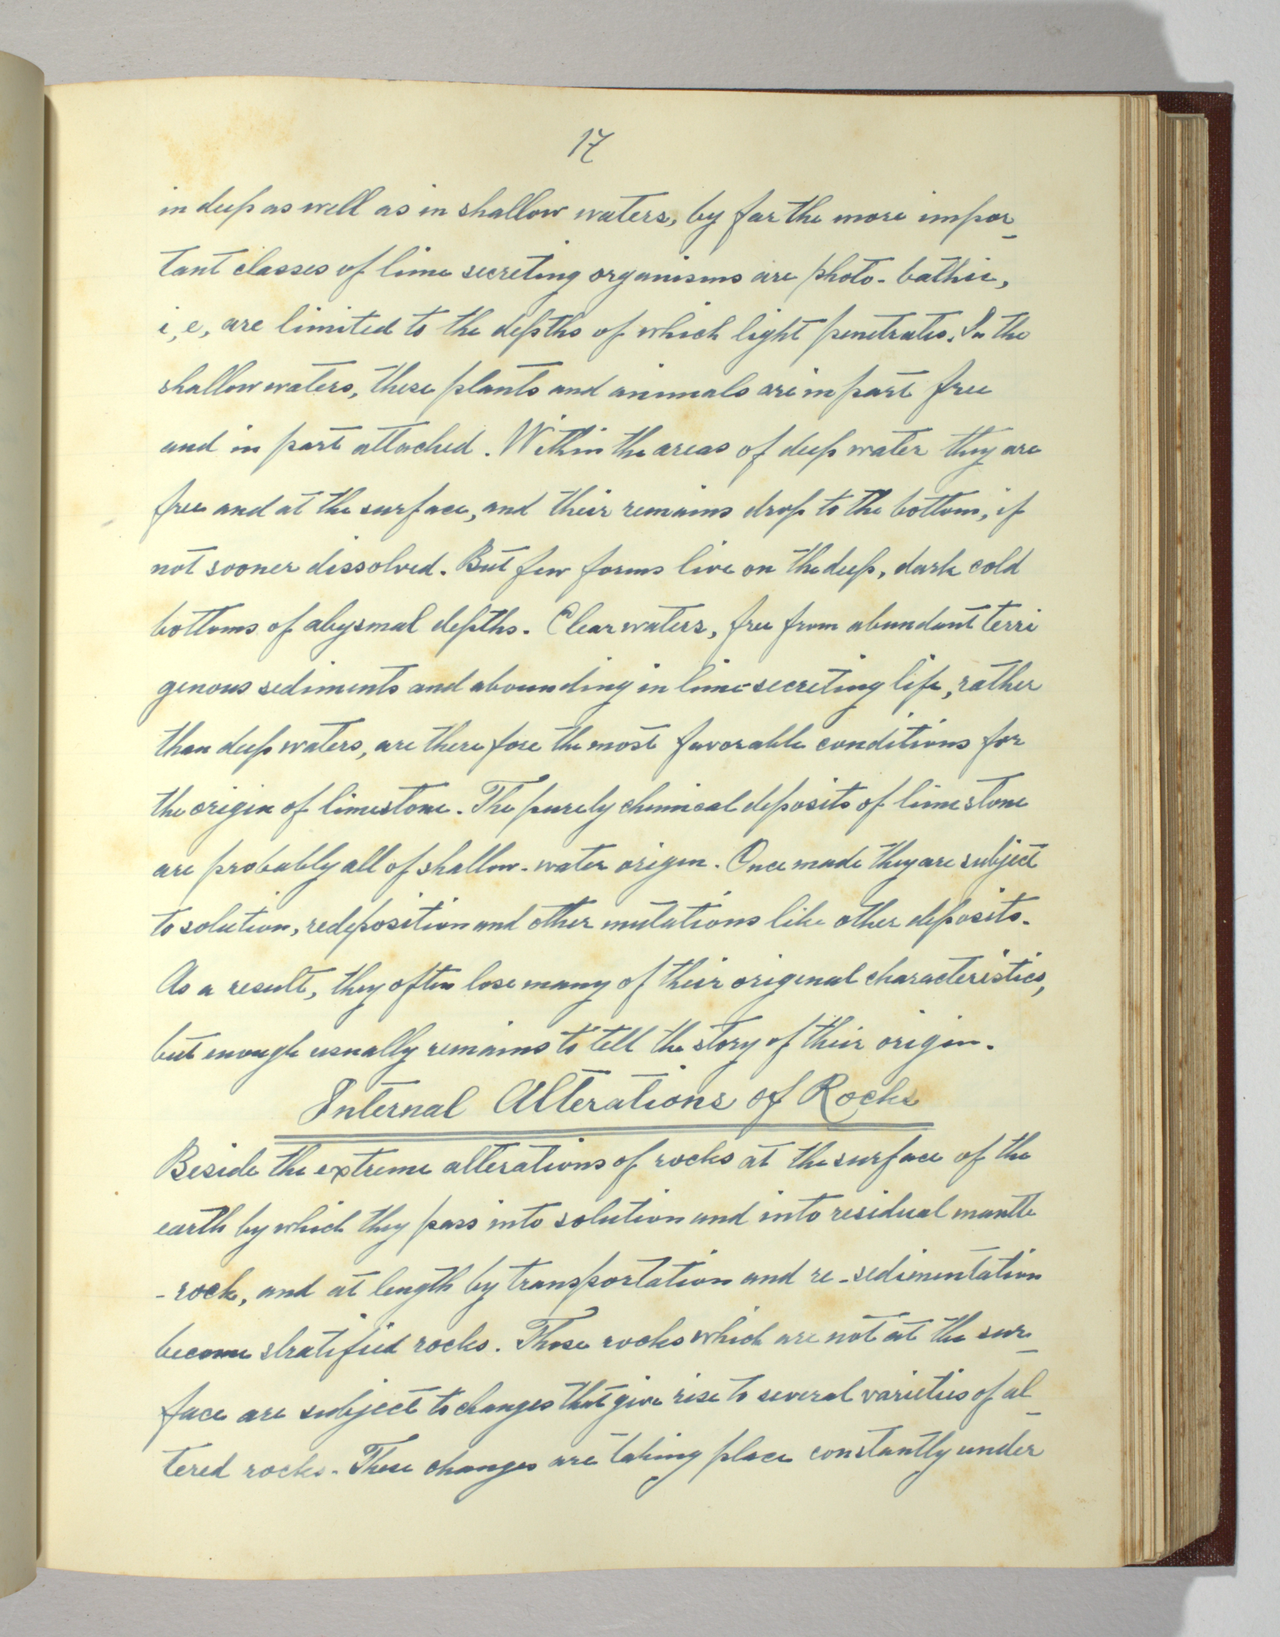 17
in deep as well as in shallow waters, by far the more impor-
tant classes of lime secreting organisms are photo-bathic,
i, e, are limited to the depths of which light penetrates. In the
shallow waters, these plants and animals are in part free
and in part attached. Within the areas of deep water they are
free and at the surface, and their remains drop to the bottom, if
not sooner dissolved. But few forms live on the deep, dark cold
bottoms of abysmal depths. Clear waters, free from abundant terri
genous sediments and abounding in lime-secreting life, rather
than deep waters, are there fore the most favorable conditions for
the origin of limestone. The purely chemical deposits of limestone
are probably all of shallow-water origin. Once made they are subject
to solution, redeposition and other mutations like other deposits.
As a result, they often lose many of their original characteristics,
but enough usually remains to tell the story of their origin.
Internal Alterations of Rocks
Beside the extreme alterations of rocks at the surface of the
earth by which they pass into solution and into residual mantle
-rock, and at length by transportation and re-sedimentation
become stratified rocks. Those rocks which are not at the sur-
face are subject to changes that give rise to several varieties of al-
tered rocks. These changes are taking place constantly under